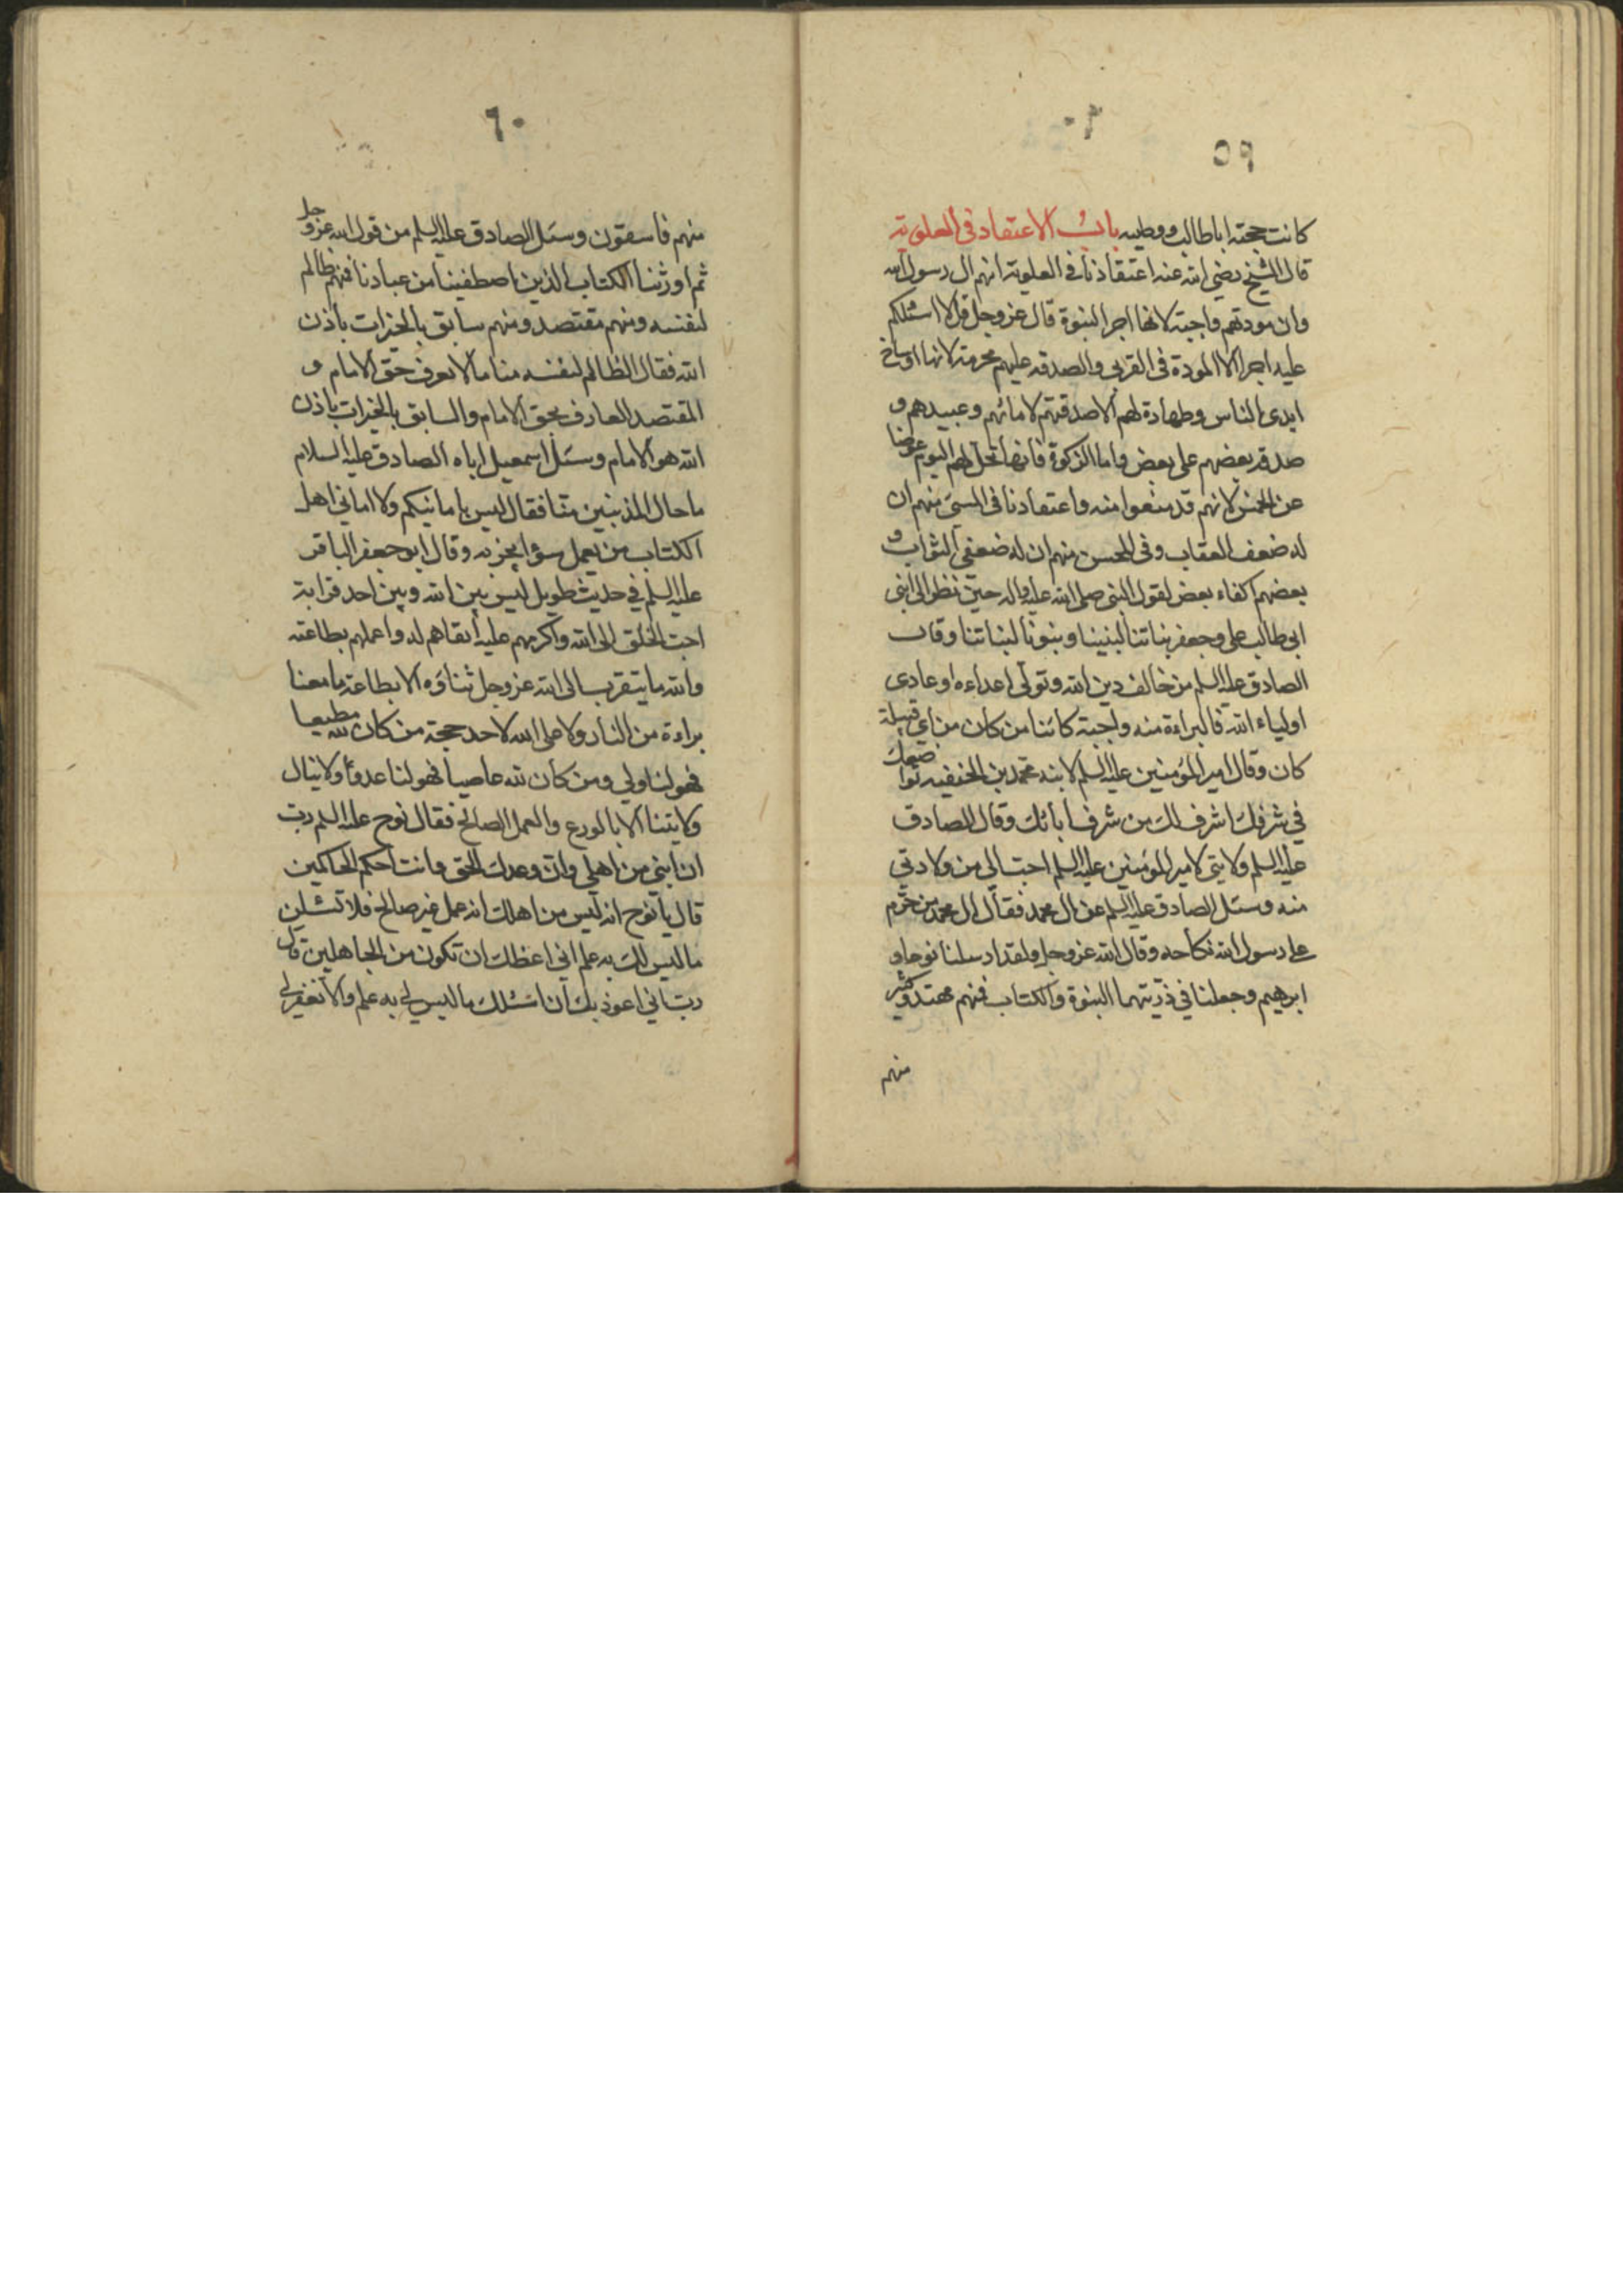 ٥٩
كانت حجته اباطالب ووصيه باب الاعتقاد في العلوية
قال الشيخ رضي الله عنه اعتقادنا في العلوية انهم ال رسول الله
وان مودتهم واجبة لانها اجر النبوة قال عز وجل قل لا اسئلكم
عليه اجرا الا المودة في القربى والصدقه عليهم محرمة لانها اوساخ
ايدي الناس وطهارة لهم الا صدقتهم لامائهم وعبيدهم و
صدقة بعضهم على بعض واما الزكوة فانها تحل لهم اليوم عوضا
عن الخمس لانهم قد منعوا منه واعتقادنا في المسئ منهم ان
له ضعف العقاب وفي المحسن منهم ان له ضعفي الثواب و
بعضهم اكفاء بعض لقول النبي صلى الله عليه واله حين نظر الى ابني
ابي طالب علي وجعفر بناتنا لبنينا وبنونا لبناتنا وقال
الصادق عليه السلم من خالف دين الله وتولى اعداءه او عادى
اولياء الله فالبراءة منه واجبة كائنا من كان من اي قبيلة
كان وقال امير المؤمنين عليه السلم لابنه محمد بن الحنفيه تواضعك
في شرفك اشرف لك من شرف ابائك وقال الصادق
عليه السلم ولايتي لامير المؤمنين عليه السلم احب الي من ولادتي
منه وسئل الصادق عليه السلم عن ال محمد فقال ال محمد من حرم
على رسول الله نكاحه وقال الله عز وجل ولقد ارسلنا نوحا و
ابرهيم وجعلنا في ذريتهما النبوة والكتاب فمنهم مهتد وكثير
منهم
٦٠
منهم فاسقون وسئل الصادق عليه السلم من قول الله عز وجل
ثم اورثنا الكتاب الذين اصطفينا من عبادنا فمنهم ظالم
لنفسه ومنهم مقتصد ومنهم سابق بالخيرات باذن
الله فقال الظالم لنفسه منا ما لا يعرف حق الامام و
المقتصد العارف بحق الامام والسابق بالخيرات باذن
الله هو الامام وسئل اسمعيل اباه الصادق عليه السلام
ما حال المذنبين منا فقال ليس بامانيكم ولا اماني اهل
الكتاب من يعمل سؤا يجز به وقال ابو جعفر الباقر
عليه السلم في حديث طويل ليس بين الله وبين احد قرابة
احب الخلق الى الله واكرمهم عليه اتقاهم له واعملهم بطاعته
والله ما يتقرب الى الله عز وجل ثناؤه الا بطاعة ما معنا
براءة من النار ولا على الله لاحد حجة من كان لله مطيعا
فهو لنا ولي ومن كان لله عاصيا فهو لنا عدوا ولا ينال
ولايتنا الا بالورع والعمل الصالح فقال نوح عليه السلم رب
ان ابني من اهلي وان وعدك الحق وانت احكم الحاكمين
قال يا نوح انه ليس من اهلك انه عمل غير صالح فلا تسئلن
ما ليس لك به علم اني اعظك ان تكون من الجاهلين قال
رب اني اعوذ بك ان اسئلك ما ليس لي به علم والا تغفر لي